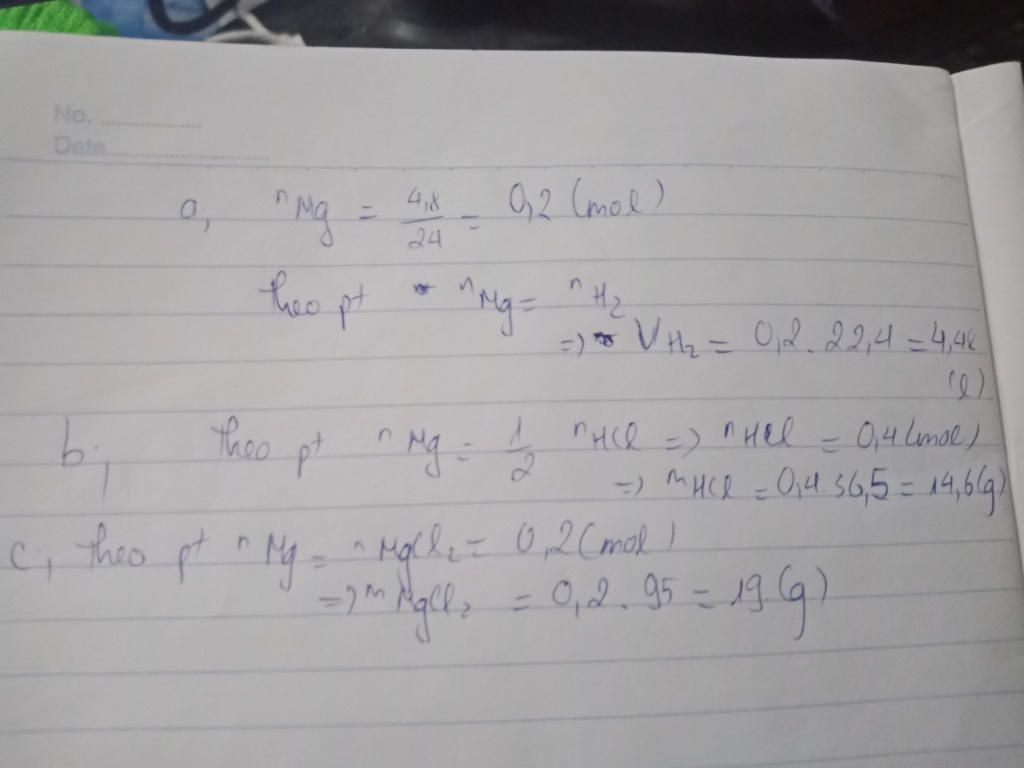 No. ..................
Date..............................
a, nMg = 4,8/24 = 0,2 (mol)
theo pt nMg = nH2
=> VH2 = 0,2 . 22,4 = 4,48
(l)
b, theo pt nMg = 1/2 nHCl => nHCl = 0,4 (mol)
=> mHCl = 0,4 . 36,5 = 14,6 (g)
c, theo pt nMg = nMgCl2 = 0,2 (mol)
=> mMgCl2 = 0,2 . 95 = 19 (g)